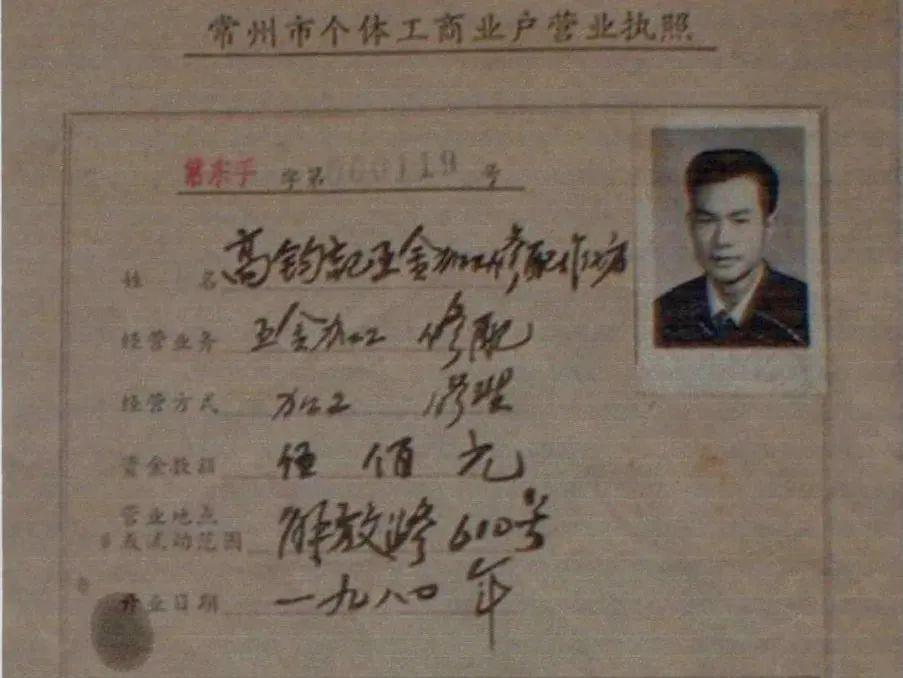 常州市个体工商业户营业执照
常东手 字第000119号
姓 名 高钧记五金加工修配作坊
经营业务 五金加工 修配
经营方式 加工 修理
资金数额 伍佰元
营业地点
及流动范围 解放路610号
开业日期 一九八〇年